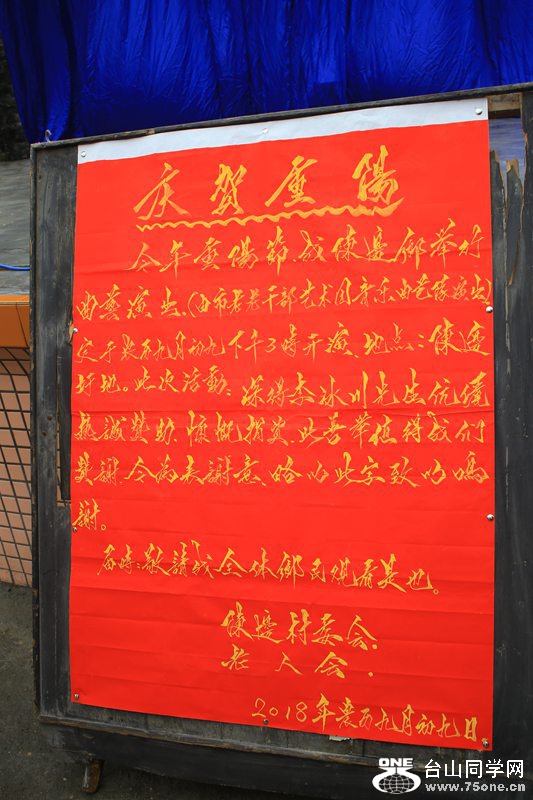 庆贺重陽
今年重陽節,我陳邊鄉举行
曲藝演出。(由市老老干部艺术团音乐曲艺隊演出)
定于农历九月初九下午3時开演。地点:陳邊
圩地。此次活動,深得李冰川先生伉儷
熱誠赞助,慷慨捐资,此善举值得我们
赞謝。今為表謝意,略以此字致以鳴
謝。
届時,敬請我全体鄉民观看是也。
陳邊村委会.
老人会.
2018年農历九月初九日
ONE 台山同学网
www.75one.cn